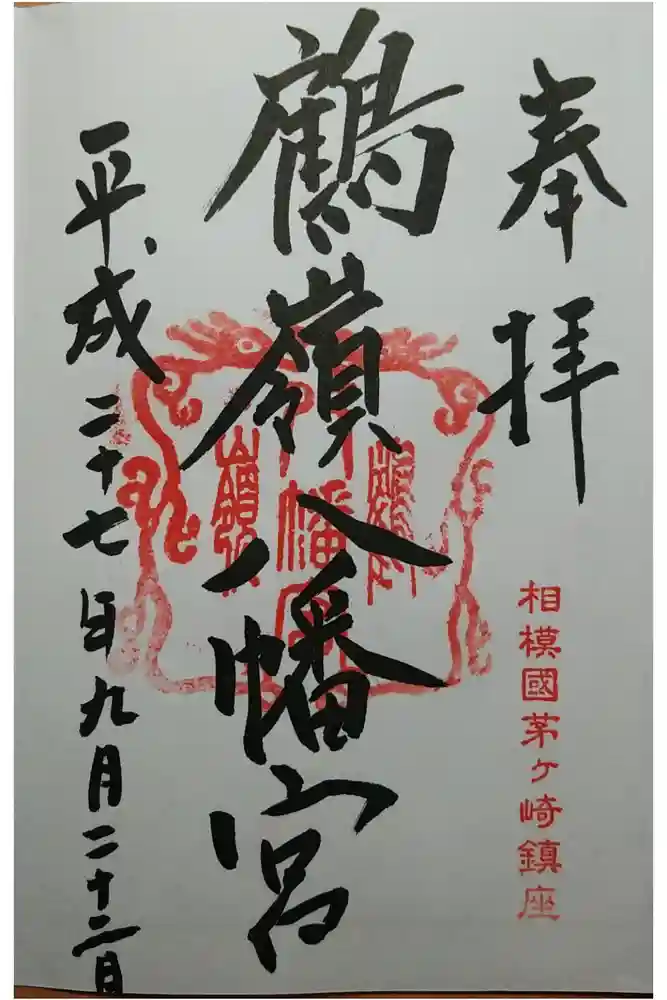 奉拝
相模國茅ヶ崎鎮座
鶴嶺八幡宮
鶴嶺
八幡宮
平成二十七年九月二十二日